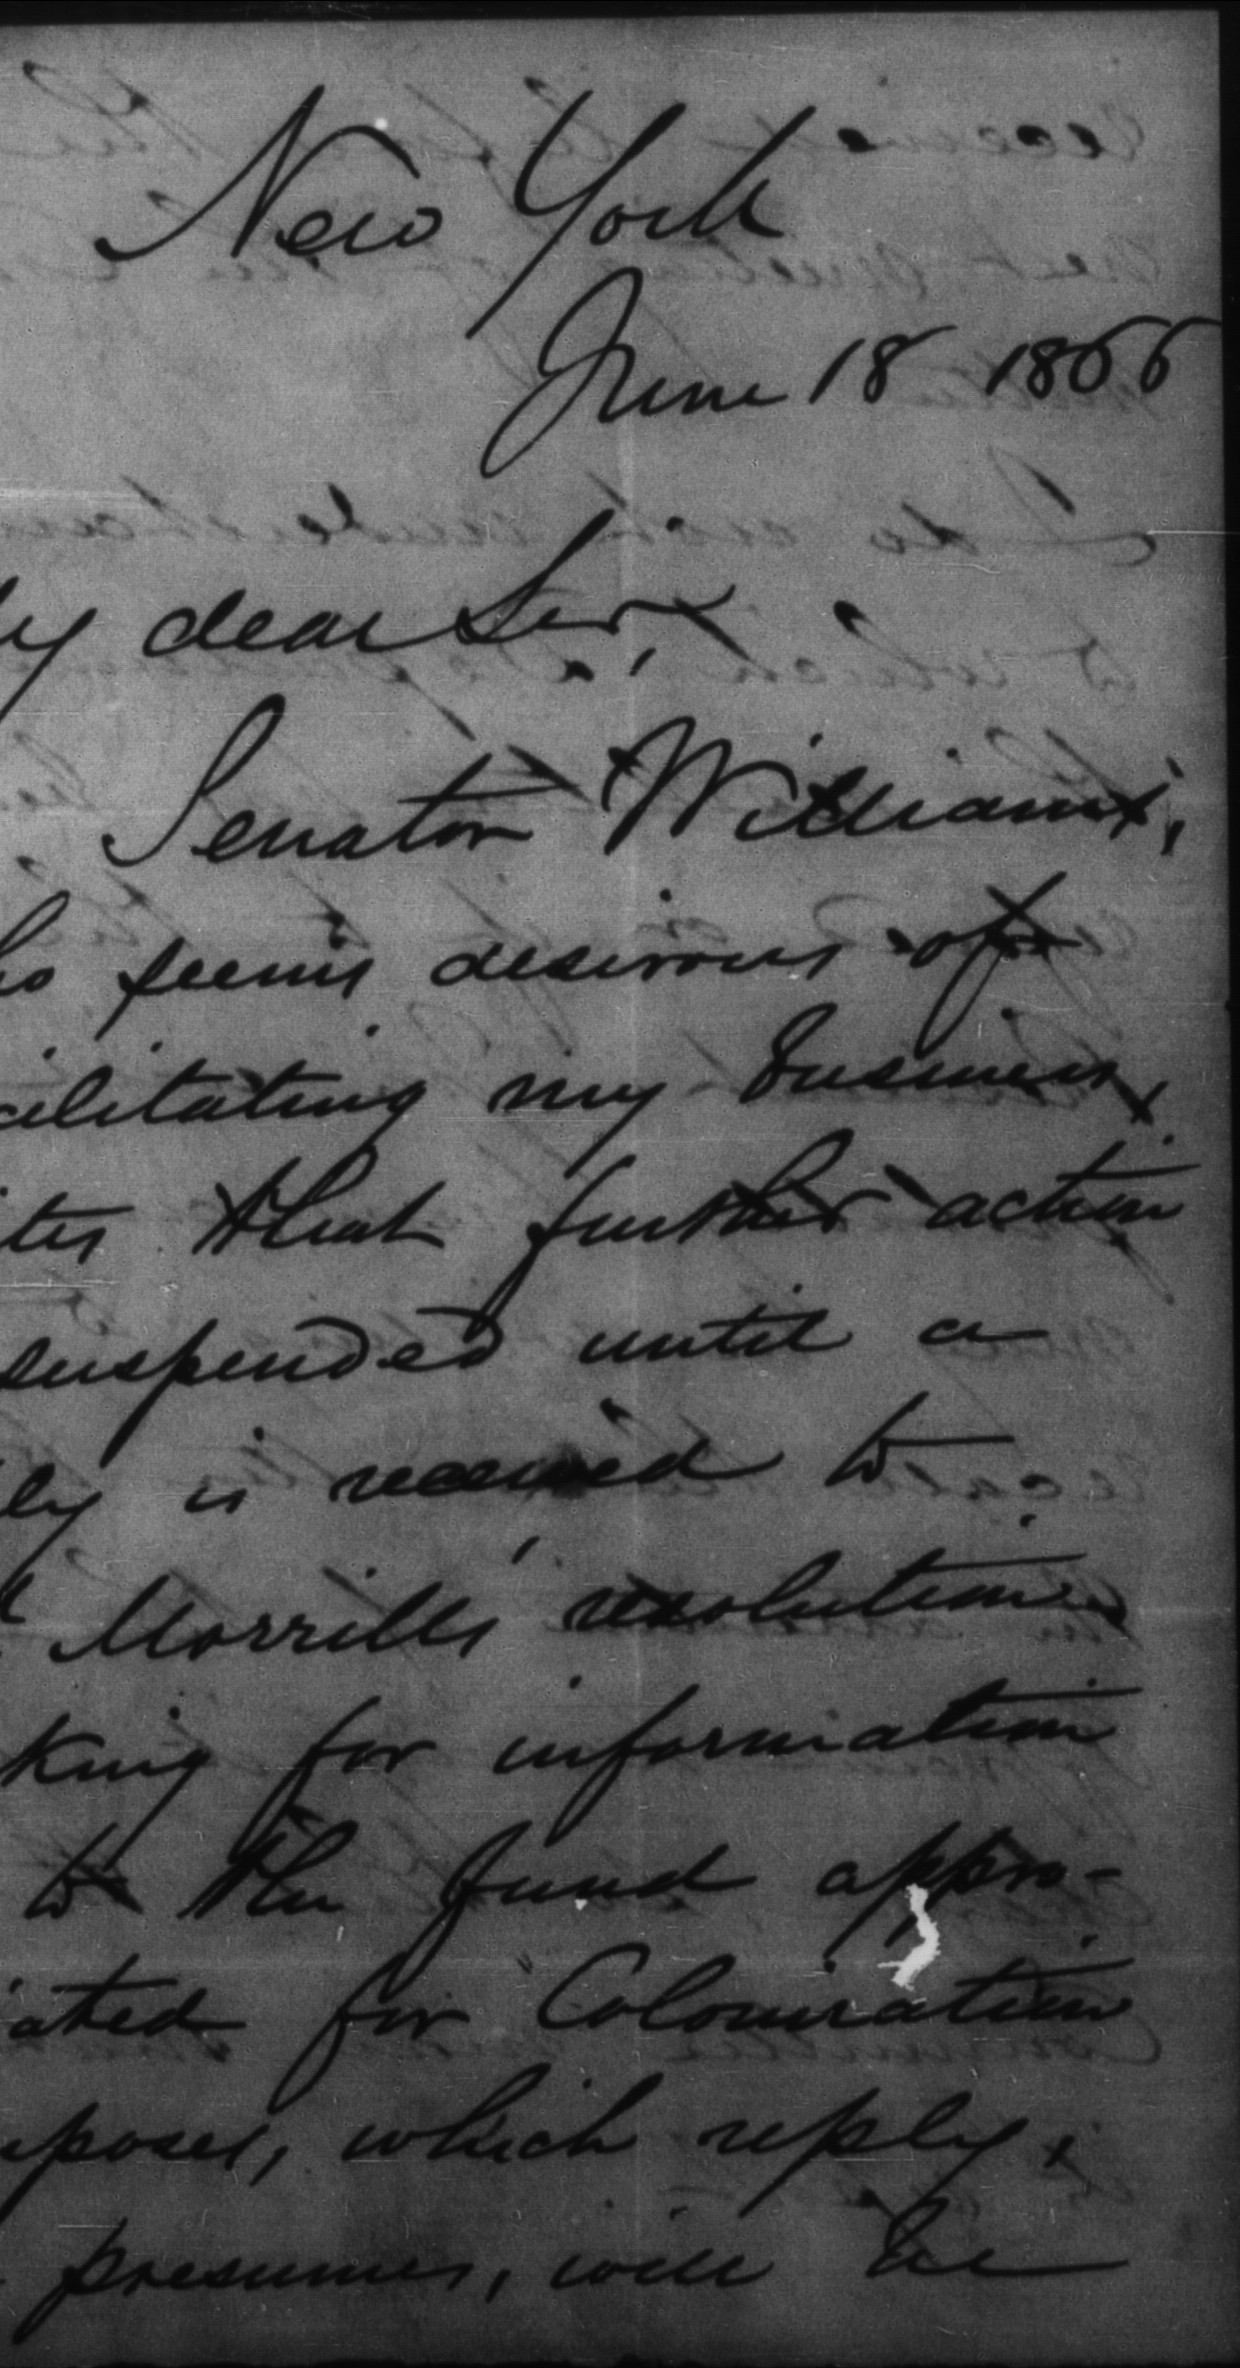 New York
June 18 1866
y dear Sir,
Senator Williams,
ho seems desirous of
cilitating my business,
tes that further action
suspended until a
ly is received to
Morrills resolution
king for information
to the fund appro-
iated for Colonization
poses, which reply,
presumes, will be